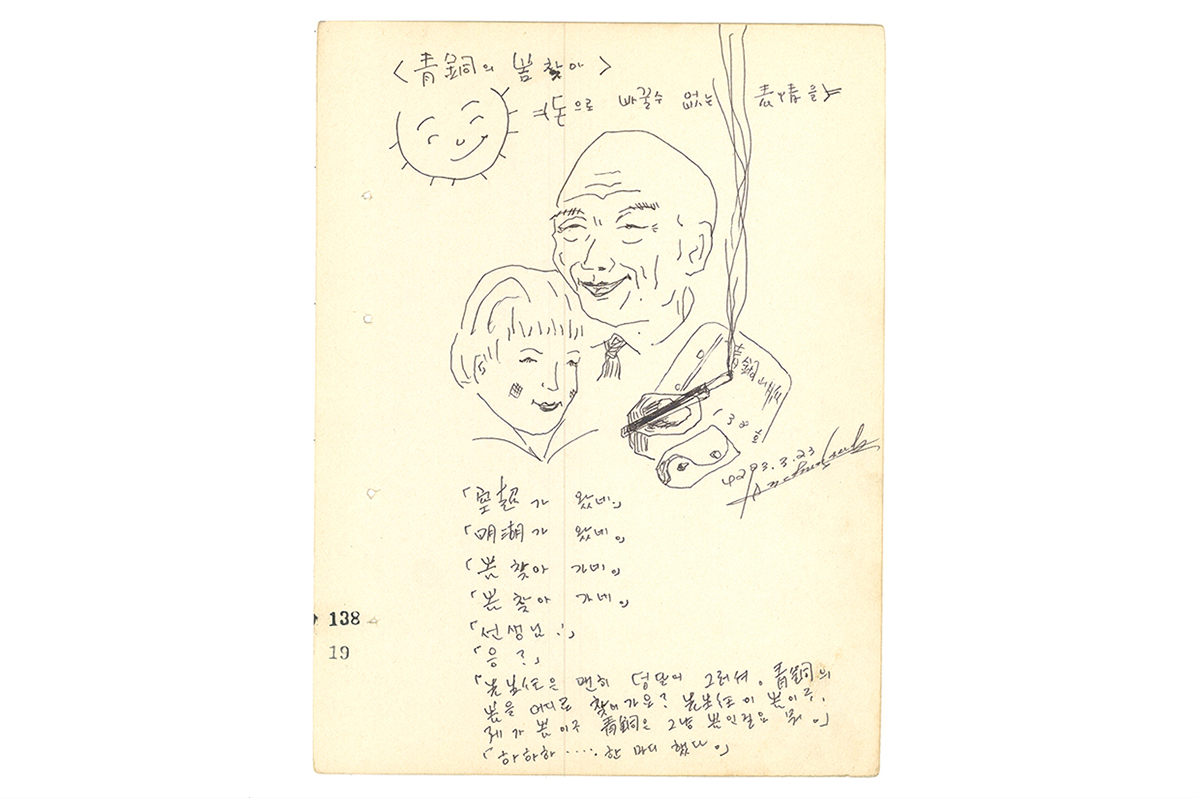 〈青銅의 봄 찾아〉
=(돈으로 바꿀수 없는 表情을)=
青銅
138호
4293.3.23
「空超가 왔네.」
「明湖가 왔네。」
「봄 찾아 가네。」
「봄 찾아 가네。」
138
「선생님!」
19
「응?」
은 맨히 덩달아 그러셔。青銅의
봄을 어디로 찾아가요? 이 봄이구,
제가 봄이구 青銅은 그냥 봄인걸요 뭐。」
「하하하‥‥‥한 마디 했다。」